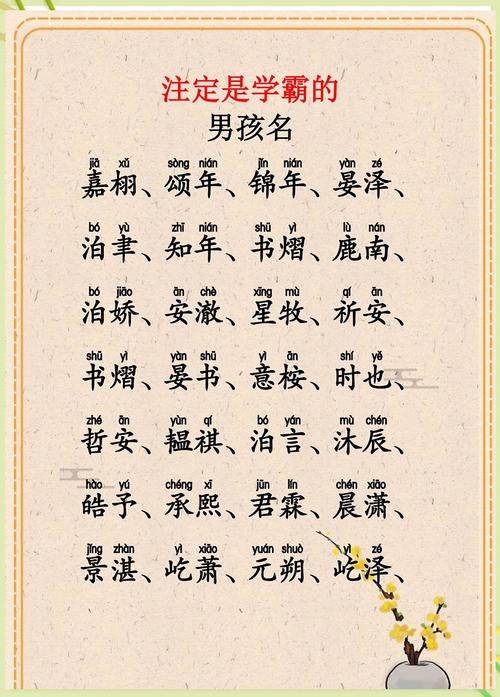 注定是学霸的
男孩名
jiā xǔ sòng nián jǐn nián yàn zé
嘉栩、颂年、锦年、晏泽、
bó yù zhī nián shū yì lù nán
泊聿、知年、书熠、鹿南、
bó jiāo ān chè xīng mù qí ān
泊娇、安澈、星牧、祈安、
shū yì yàn shū yì ān shí yě
书熠、晏书、意桉、时也、
zhé ān yùn qí bó yán mù chén
哲安、韫祺、泊言、沐辰、
hào yú chéng xī jūn lín chén xiāo
皓予、承熙、君霖、晨潇、
jǐng zhàn yì xiāo yuán shuò yì zé
景湛、屹萧、元朔、屹泽、